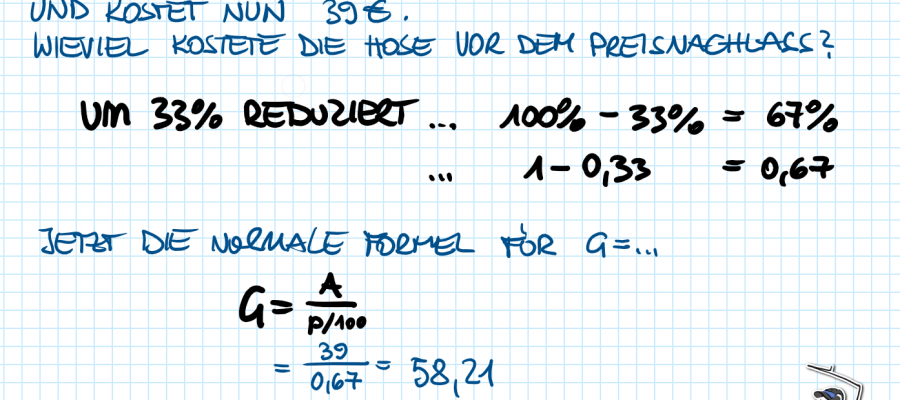 UND KOSTET NUN 39€.
WIEVIEL KOSTETE DIE HOSE VOR DEM PREISNACHLASS?
UM 33% REDUZIERT ... 100% - 33% = 67%
... 1 - 0,33 = 0,67
JETZT DIE NORMALE FORMEL FÜR G = ...
G = A / p/100
= 39 / 0,67 = 58,21